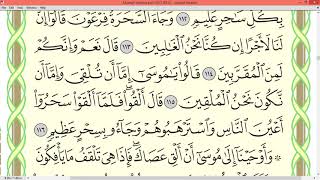 بِكُلِّ سَٰحِرٍ عَلِيمٍ ١١٢ وَجَآءَ ٱلسَّحَرَةُ فِرْعَوْنَ قَالُوٓا۟ إِنَّ
لَنَا لَأَجْرًا إِن كُنَّا نَحْنُ ٱلْغَٰلِبِينَ ١١٣ قَالَ نَعَمْ وَإِنَّكُمْ
لَمِنَ ٱلْمُقَرَّبِينَ ١١٤ قَالُوا۟ يَٰمُوسَىٰٓ إِمَّآ أَن تُلْقِىَ وَإِمَّآ أَن
نَّكُونَ نَحْنُ ٱلْمُلْقِينَ ١١٥ قَالَ أَلْقُوا۟ فَلَمَّآ أَلْقَوْا۟ سَحَرُوٓا۟
أَعْيُنَ ٱلنَّاسِ وَٱسْتَرْهَبُوهُمْ وَجَآءُو بِسِحْرٍ عَظِيمٍ ١١٦
۞ وَأَوْحَيْنَآ إِلَىٰ مُوسَىٰٓ أَنْ أَلْقِ عَصَاكَ فَإِذَا هِىَ تَلْقَفُ مَا يَأْفِكُونَ